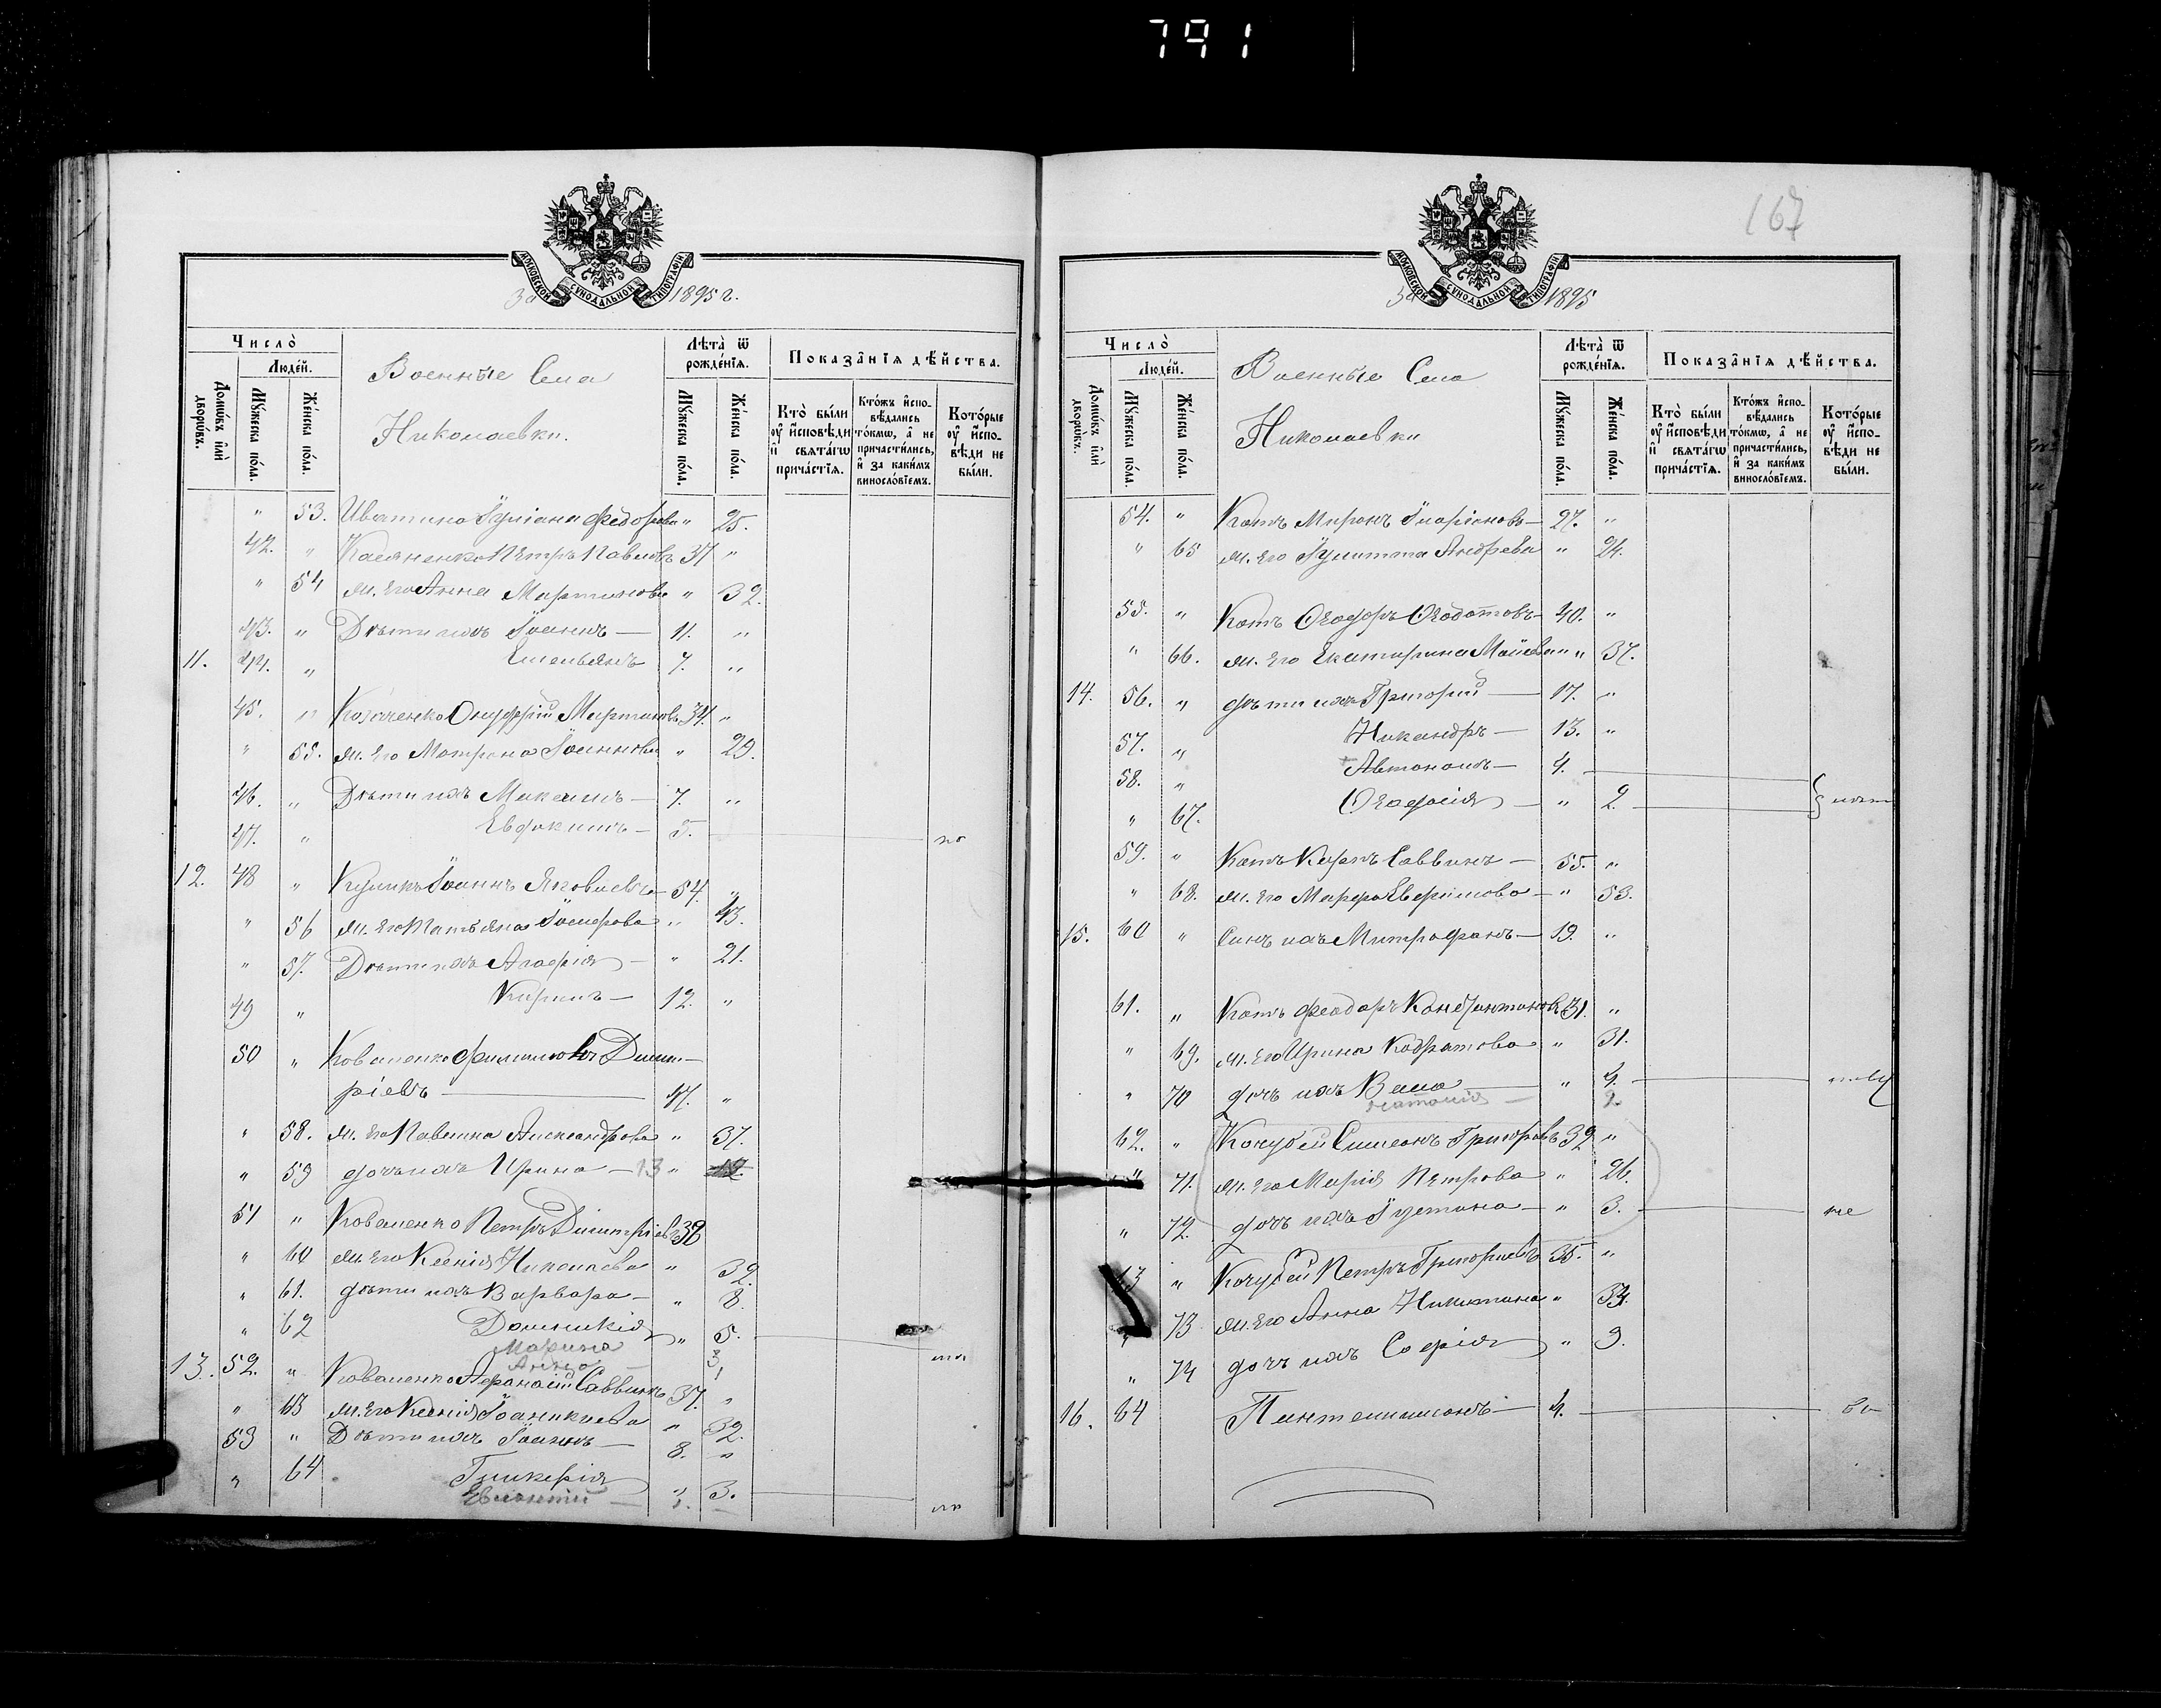 791
167
МОСКОВСКОЙ СѴНОДАЛЬНОЙ ТИПОГРАФІИ
За 1895 г.
Число̀
Людéй.
Домѡ́въ и҆лѝ дворѡ́въ.
Мꙋ́жеска по́ла.
Же́нска по́ла.
Военные Села
Николаевки.
Лѣта̀ ѿ рожде́нїѧ.
Мꙋ́жеска по́ла.
Же́нска по́ла.
Показа̑нїѧ дѣ́йства.
Кто̀ бы́ли ᲂу҆ и҆сповѣди и҆ свѧта́гѡ прича́стїѧ.
Кто́жъ и҆спо-вѣдались то́кмѡ, а҆ не причасти́лись, и҆ за каки́мъ винословїемъ.
Кото́рые ᲂу҆ и҆спо-вѣди не бы́ли.
" 53. Ивтина Іуліана Федорова " 25.
42. " Касяненко Петръ Павловъ 37 "
" 54 ж. его Анна Мартинова " 32.
43. " Дѣти ихъ Іоаннъ — 11. "
11. 44. " Емельянъ 7. "
45. " Козаченко Онуфрій Мартиновъ 34. "
" 55. ж. его Матрона Іоаннова " 29.
46. " Дѣти ихъ Максимъ — 7. "
47. " Евдокимъ — 5.
12. 48 " Куликъ Іоаннъ Яковлевъ — 54. "
" 56 ж. его Татьяна Іосифова " 43.
" 57. Дѣти ихъ Агафія — " 21.
49 " Кирилъ — 12. "
50 " Коваленко Филимонъ Димит-
ріевъ — 47. "
" 58. ж. его Павлина Александрова " 37.
" 59 дочь ихъ Ирина — 13 " 12
51 " Коваленко Петръ Димитріевъ 38
" 60 ж. его Ксенія Николаева " 32.
" 61. дѣти ихъ Варвара — " 8.
" 62 Домникія " 5.
Марина 3
Анна — 1
13. 52. " Коваленко Афанасій Саввинъ 37. "
" 63 ж. его Ксенія Іоанникіева " 32.
53 " Дѣти ихъ Іоаннъ — 8. "
" 64 Гликерія " 3.
Евлампій — 1. —
МОСКОВСКОЙ СѴНОДАЛЬНОЙ ТИПОГРАФІИ
За 1895
Число̀
Людéй.
Домѡ́въ и҆лѝ дворѡ́въ.
Мꙋ́жеска по́ла.
Же́нска по́ла.
Военные Села
Николаевки
Лѣта̀ ѿ рожде́нїѧ.
Мꙋ́жеска по́ла.
Же́нска по́ла.
Показа̑нїѧ дѣ́йства.
Кто̀ бы́ли ᲂу҆ и҆сповѣди и҆ свѧта́гѡ прича́стїѧ.
Кто́жъ и҆спо-вѣдались то́кмѡ, а҆ не причасти́лись, и҆ за каки́мъ винословїемъ.
Кото́рые ᲂу҆ и҆спо-вѣди не бы́ли.
54. " Котъ Миронъ Иларіоновъ — 27. "
" 65 ж. его Іулитта Андреева " 24.
55. " Котъ Ѳеодоръ Ѳеодотовъ — 40. "
" 66. ж. его Екатирина " 37.
14. 56. " дѣти ихъ Григорій — 17. "
57. " Никандръ — 13. "
58. " Автономъ — 4.
" 67. Ѳеодосія — " 2
59. " Котъ Карпъ Саввинъ — 55. "
" 68. ж. его Марфа Евфимова — " 53.
15. 60 " Синъ ихъ Митрофанъ — 19. "
61. " Котъ Феодоръ Кондратиковъ 31. "
" 69. ж. его Ирина Кодратова " 31.
" 70 дочь ихъ Васса — " 4.
Наталія — 2.
62. " Кочубей Симеонъ Григоровъ 32 "
" 71. ж. его Марія Петрова " 26.
" 72. дочь ихъ Іустина — " 3. не
63 " Кочубей Петръ Григорьевъ 35. "
" 73 ж. его Анна Никитина " 34.
" 74 дочь ихъ Софія " 9.
16. 64 Пантелиимонъ — 4.